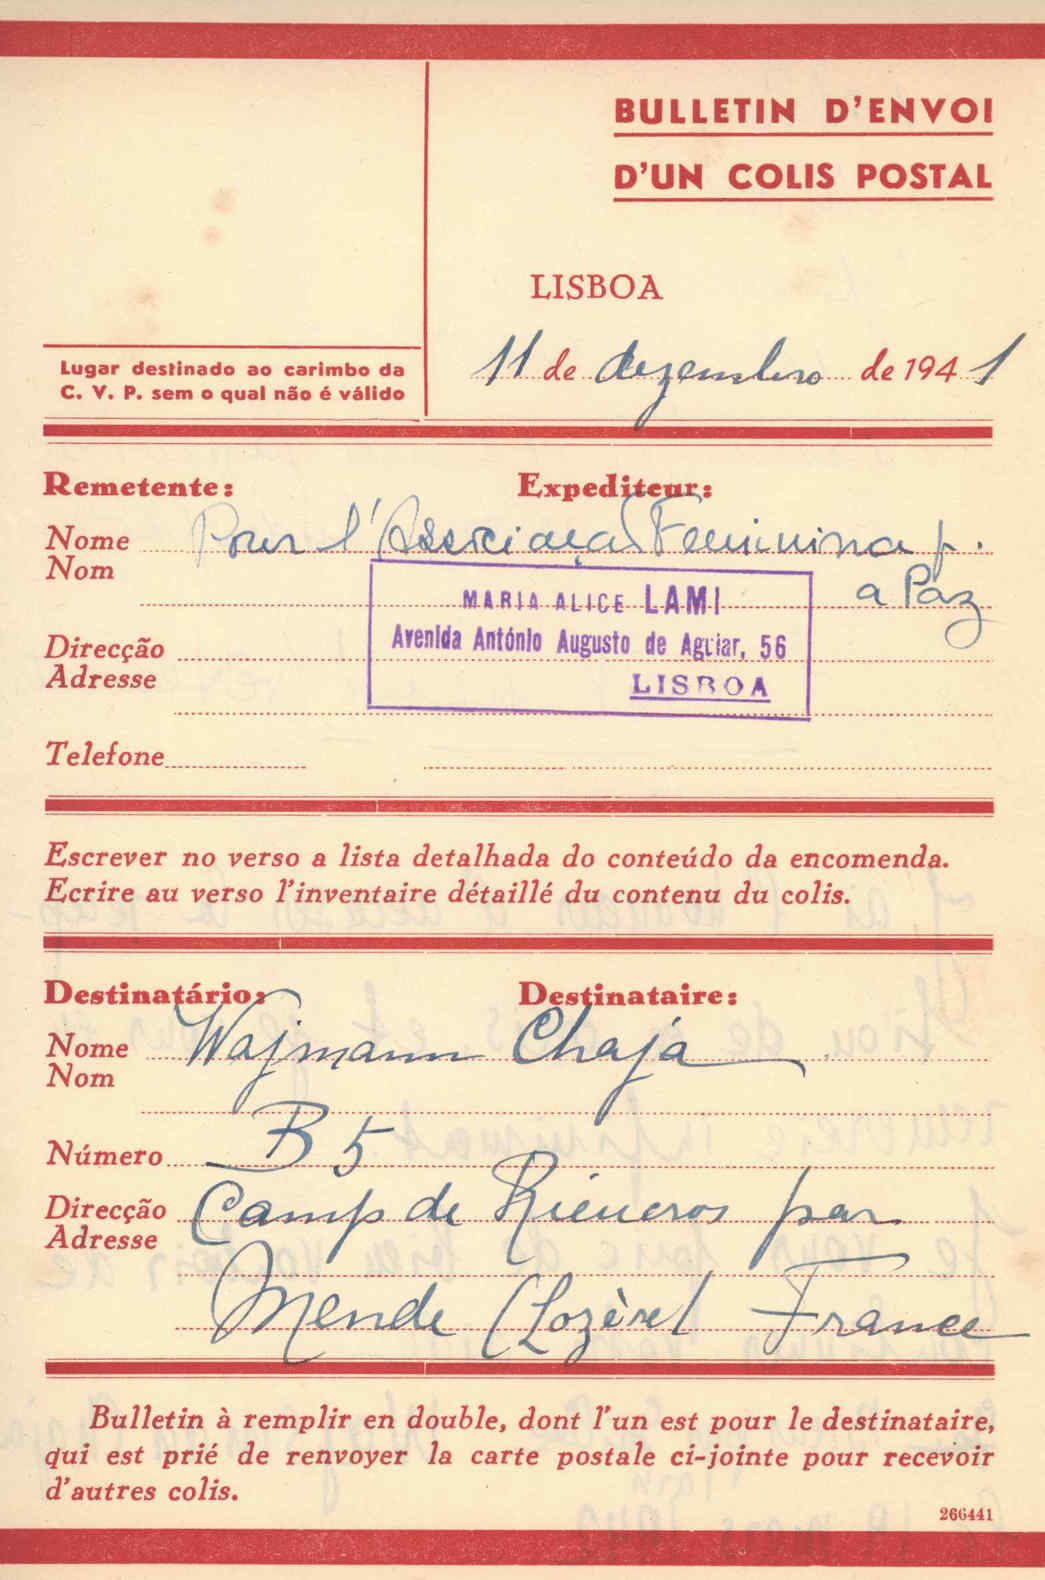 BULLETIN D'ENVOI
D'UN COLIS POSTAL
LISBOA
11 de dezembro de 1941
Lugar destinado ao carimbo da
C. V. P. sem o qual não é válido
Remetente: Expediteur:
Nome Pour l'Associação Feminina p.
Nom
a Paz
MARIA ALICE LAMI
Direcção Avenida António Augusto de Aguiar, 56
Adresse LISBOA
Telefone
Escrever no verso a lista detalhada do conteúdo da encomenda.
Ecrire au verso l'inventaire détaillé du contenu du colis.
Destinatário: Destinataire:
Nome Wajmann Chaja
Nom
Número B 5
Direcção Camp de Rieucros par
Adresse
Mende (Lozère) France
Bulletin à remplir en double, dont l'un est pour le destinataire,
qui est prié de renvoyer la carte postale ci-jointe pour recevoir
d'autres colis.
266441